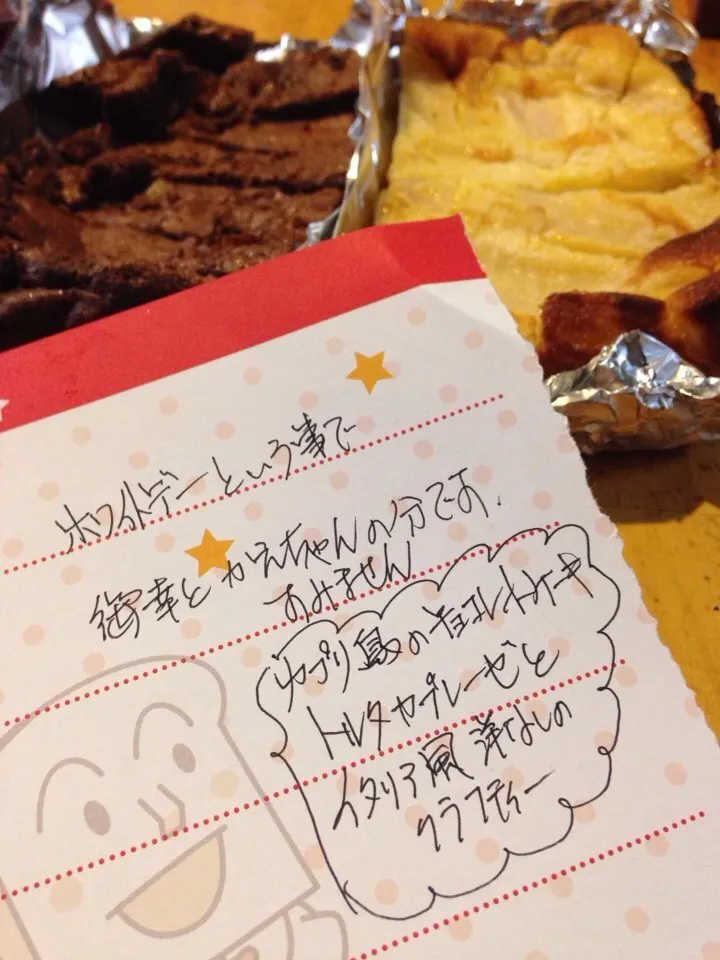 ホワイトデーという事で
御幸とかえちゃんの分です.
すみません
カプリ島のチョコレートケーキ
トルタカプレーゼと
イタリア風洋なしの
クラフティー